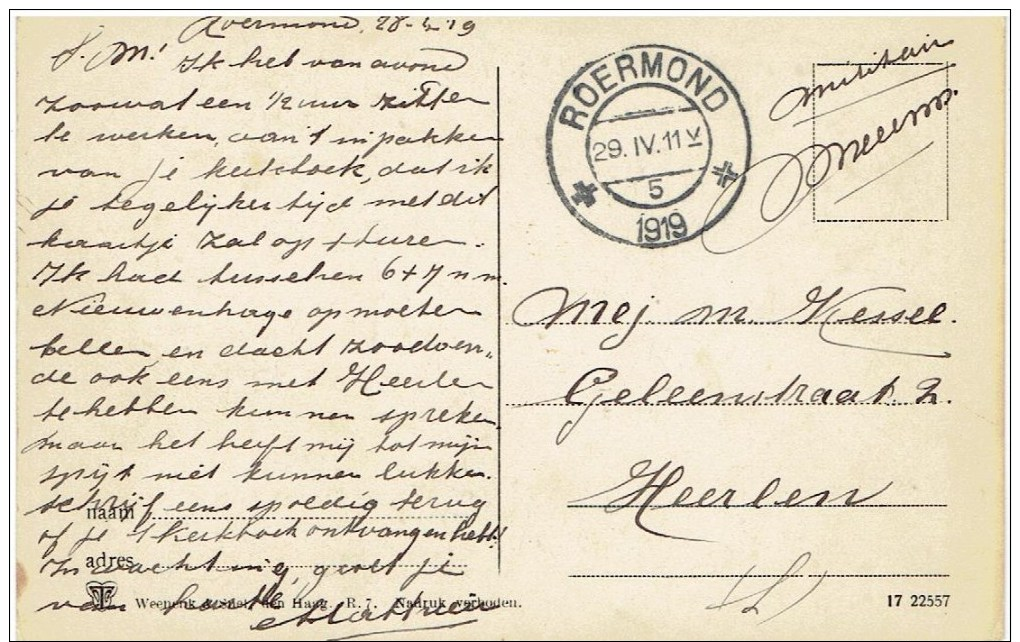 Roermond, 28-4-19
Ik heb van avond
zoowat een ½ uur zitten
te werken, aan 't inpakken
van je kerkboek, dat ik
je tegelijkertijd met dit
kaartje zal opsturen.
Ik had tusschen 6+7 n.m.
Nieuwenhage op moeten
bellen en dacht zoodoen„
de ook eens met Heerlen
te hebben kunnen spreken
maar het heeft mij tot mijn
spijt niet kunnen lukken.
schrijf eens spoedig terug
naam
of je 't kerkboek ontvangen hebt!
adres
In wachting, groet je
van harte
Weenenk & Snel, den Haag. R. 7. Nadruk verboden.
ROERMOND
29. IV. 11 V
5
1919
militair
Mej. M. Kessel.
Geleenstraat 2.
Heerlen
17 22557